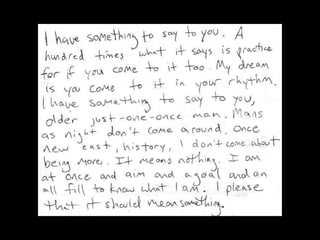 I have something to say to you. A
hundred times what it says is practice
for if you come to it too. My dream
is you come to it in your rhythm.
I have something to say to you,
older just-one-once man. Mans
as night don't come around. Once
new east, history, I don't come about
being more. It means nothing. I am
at once and aim and a goal and an
all fill to know what I am. I please
that it should mean something.